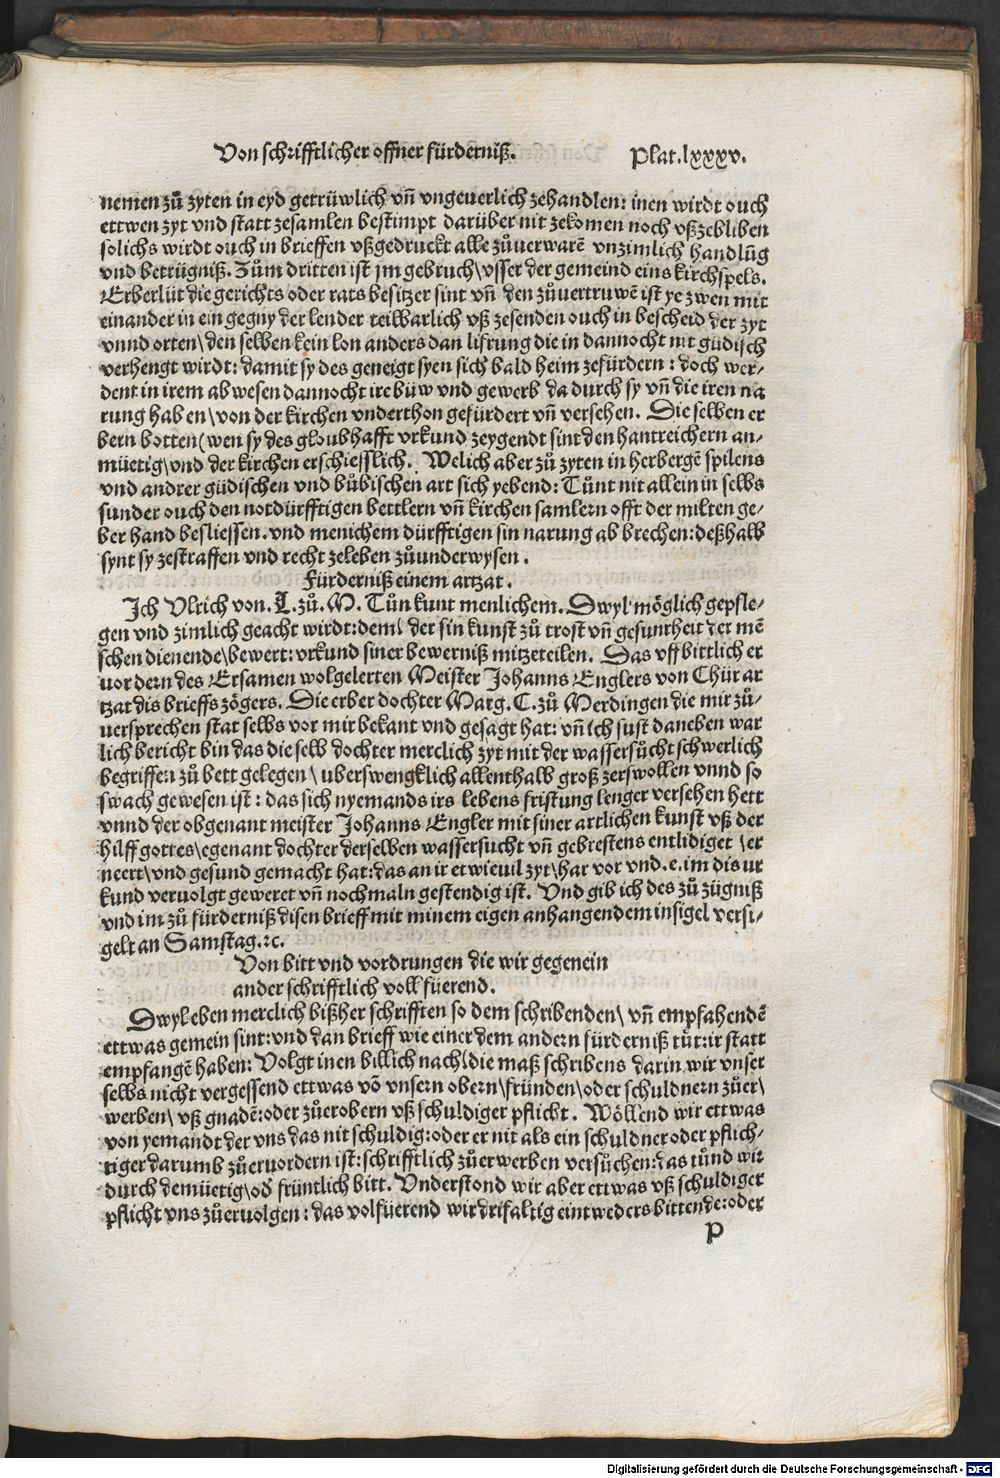 Von schrifftlicher offner fürderniß. Plat.lxxxv.
nemen zů zyten in eyd getrüwlich vñ vngeuerlich zehandlen: inen wirdt ouch
ettwen zyt vnd statt zesamlen bestimpt darüber nit zekomen noch vßzebliben
solichs wirdt ouch in brieffen vßgedruckt alle zůuerwarē vnzimlich handlūg
vnd betrügniß. Zům dritten ist jm gebruch\vsser der gemeind eins kirchspels.
Erberlüt die gerichts oder rats besitzer sint vñ den zůuertruwē ist ye zwen mit
einander in ein gegny der lender teilbarlich vß zesenden ouch in bescheid der zyt
vnnd orten\den selben kein lon anders dan lifrung die in dannocht nit güdisch
verhengt wirdt: damit sy des geneigt syen sich bald heim zefürdern: doch wer⸗
dent in irem abwesen dannocht ire büw vnd gewerb da durch sy vñ die iren na
rung haben\von der kirchen vnderthon gefürdert vñ versehen. Die selben er
bern botten(wen sy des gloubhafft vrkund zeygendt sint den hantreichern an⸗
müetig\vnd der kirchen erschiesslich. Welich aber zů zyten in herbergē spilens
vnd andrer güdischen vnd bůbischen art sich yebend: Tůnt nit allein in selbs
sunder ouch den notdürfftigen bettlern vñ kirchen samlern offt der milten ge⸗
ber hand besliessen. vnd menichem dürfftigen sin narung ab brechen: deßhalb
synt sy zestraffen vnd recht zeleben zůunderwysen.
Fürderniß einem artzat.
Ich Vlrich von. T. zů. M. Tůn kunt menlichem. Swyl möglich gepfle⸗
gen vnd zimlich geacht wirdt: dem\ der sin kunst zů trost vñ gesuntheit der mē
schen dienende\bewert: vrkund siner bewerniß mitzeteilen. Das vff bittlich er
uordern des Ersamen wolgelerten Meister Johanns Englers von Chür ar
tzat dis brieffs zögers. Die erber dochter Marg. C. zů Merdingen die mir zů⸗
uersprechen stat selbs vor mir bekant vnd gesagt hat: vñ ich sust daneben war
lich bericht bin das die selb dochter merclich zyt mit der wassersůcht schwerlich
begriffen zů bett gelegen\ uberswengklich allenthalb groß zerswollen vnnd so
swach gewesen ist: das sich nyemands irs lebens fristung lenger versehen hett
vnnd der obgenant meister Johanns Engler mit siner artlichen kunst vß der
hilff gottes\egenant dochter derselben wassersucht vñ gebrestens entlidiget \er
neert\vnd gesund gemacht hat: das an ir etwieuil zyt\har vor vnd. e. im dis ur
kund veruolgt geweret vñ nochmaln gestendig ist. Vnd gib ich des zů zügniß
vnd im zů fürderniß disen brieff mit minem eigen anhangendem insigel versi⸗
gelt an Samstag. ꝛc.
Von bitt vnd vordrungen die wir gegenein
ander schrifftlich voll füerend.
Swyl eben merclich bißher schrifften so dem schribenden\ vñ empfahendē
ettwas gemein sint: vnd dan brieff wie einer dem andern fürderniß tůt: ir statt
empfangē haben: Volgt inen billich nach\die maß schribens darin wir vnser
selbs nicht vergessend ettwas vō vnsern obern\fründen\oder schuldnern zůer\
werben\ vß gnadē: oder zůerobern vß schuldiger pflicht. Wöllend wir ettwas
von yemandt der vns das nit schuldig: oder er nit als ein schuldner oder pflich⸗
tiger darumb zůeruordern ist: schrifftlich zůerwerben versůchen: das tůnd wir
durch demüetig\oď früntlich bitt. Vnderstond wir aber ettwas vß schuldiger
pflicht vns zůeruolgen: das volfüerend wir drifaltig eintweders bittende: oder
P
Digitalisierung gefördert durch die Deutsche Forschungsgemeinschaft - DFG